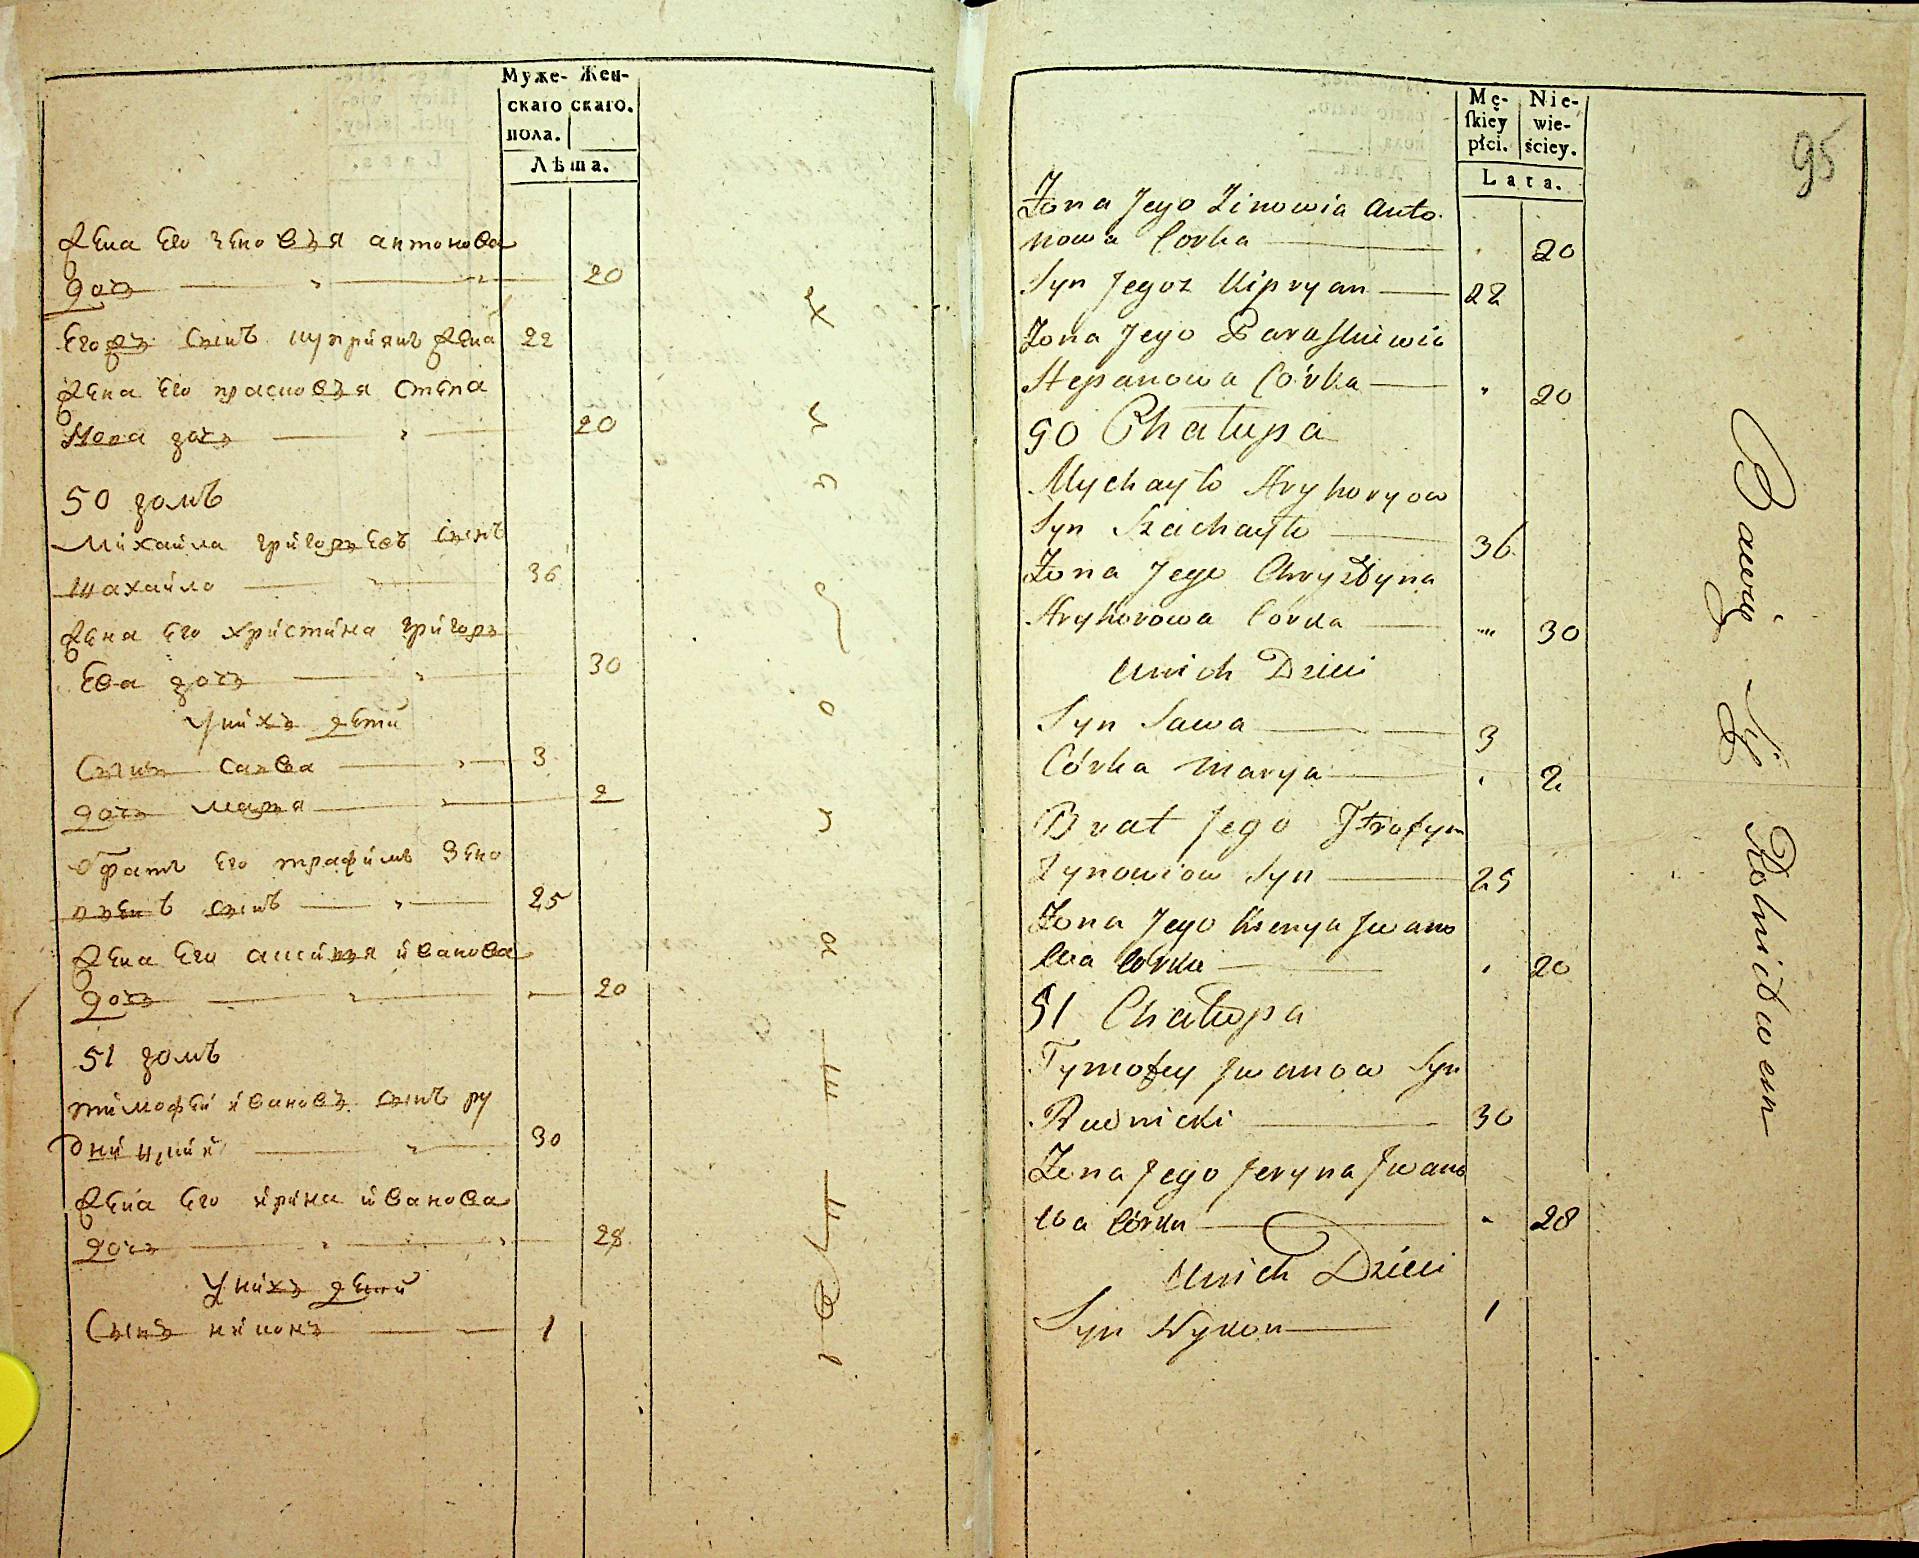 Муже- Жен-
скаго скаго.
пола.
Лѣта.
Жена его Зеновѣя антонова
дочь 20
Егоръ сынъ куприянъ 22
Жена его прасковья степа
нова дочь 20
50 домъ
Михайла григорьевъ сынъ
шахайло 36
Жена его христина григорь
ева дочь 30
у нихъ дети
Сынъ савва 3
дочь марья 2
братъ его трафимъ Зено
вьевъ сынъ 25
Жена его аксинья иванова
дочь 20
51 домъ
тимофей ивановъ сынъ ру
дницкий 30
Жена его ирина иванова
дочь 28
у нихъ дети
Сынъ никонъ 1
Mę- Nie-
skiey wie-
płci. ściey.
Lata.
95
Żona Jego Zinowia Anto
nowa Corka 20
Syn Jegoż Kipryan 22
Żona Jego Paraskiewia
Stepanowa Córka 20
50 Chałupa
Mychayło Hryhoryow
Syn Szachayło 36
Żona Jego Chrystyna
Hryhorowa Corka 30
U nich Dzieci
Syn Sawa 3
Córka Marya 2
Brat Jego Trofym
Zynowiow Syn 25
Żona Jego Ksenya Iwano
wa Córka 20
51 Chałupa
Tymofey Iwanow Syn
Rudnicki 30
Żona Jego Jeryna Iwano
wa Córka 28
U nich Dzieci
Syn Nykon 1
Bawią Się Rolnictwem